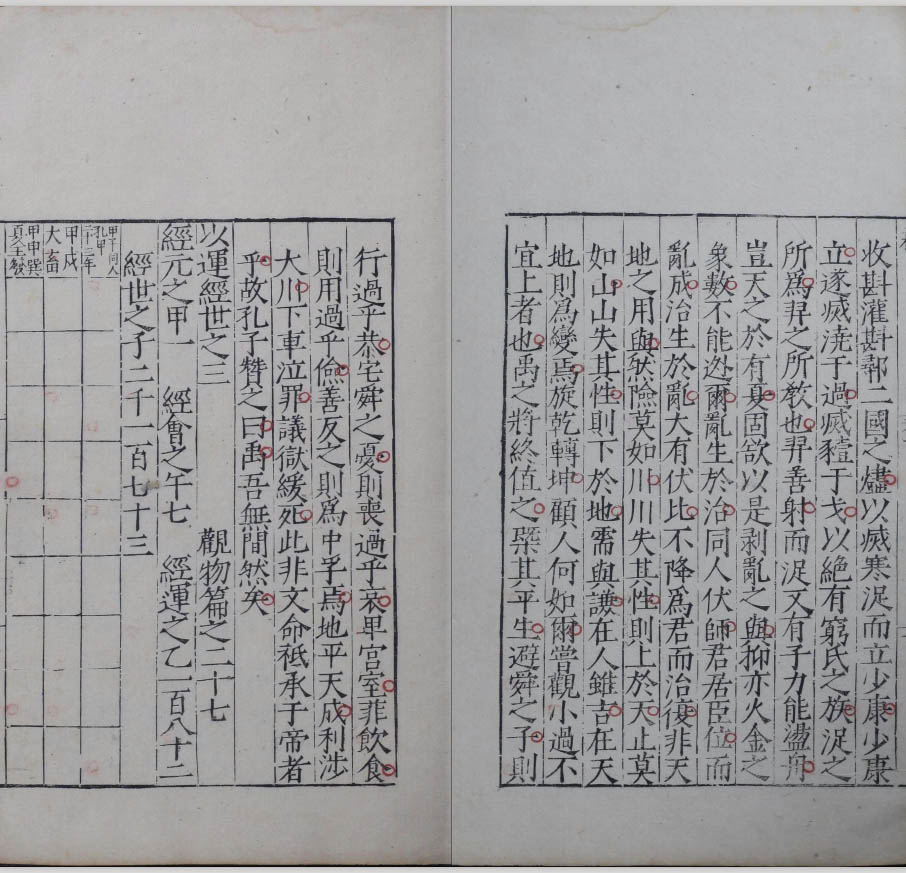 收斟灌斟鄩二國之燼以㓕寒浞而立少康少康
立遂㓕澆于過㓕豷于戈以絕有窮氏之族浞之
所爲羿之所敎也羿善射而浞又有子力能盪舟
豈天之於有夏固欲以是剥亂之與抑亦火金之
象數不能迯爾亂生於治同人伏師君居臣位而
亂成治生於亂大有伏比不降爲君而治復非天
地之用與然險莫如川川失其性則上於天止莫
如山山失其性則下於地需與謙在人雖吉在天
地則爲變焉旋乾轉坤顧人何如爾嘗觀小過不
宜上者也禹之將終值之槩其平生避舜之子則
行過乎恭宅舜之憂則喪過乎哀卑宫室菲飲食
則用過乎儉善反之則爲中孚焉地平天成利涉
大川下車泣罪議獄緩死此非文命祗承于帝者
乎故孔子贊之曰禹吾無間然矣
以運經世之三 觀物篇之二十七
經元之甲一 經會之午七 經運之乙一百八十二
經世之子二千一百七十三
甲子 同人
孔甲
二十三年
甲戌
大畜
甲申 巽
夏王發